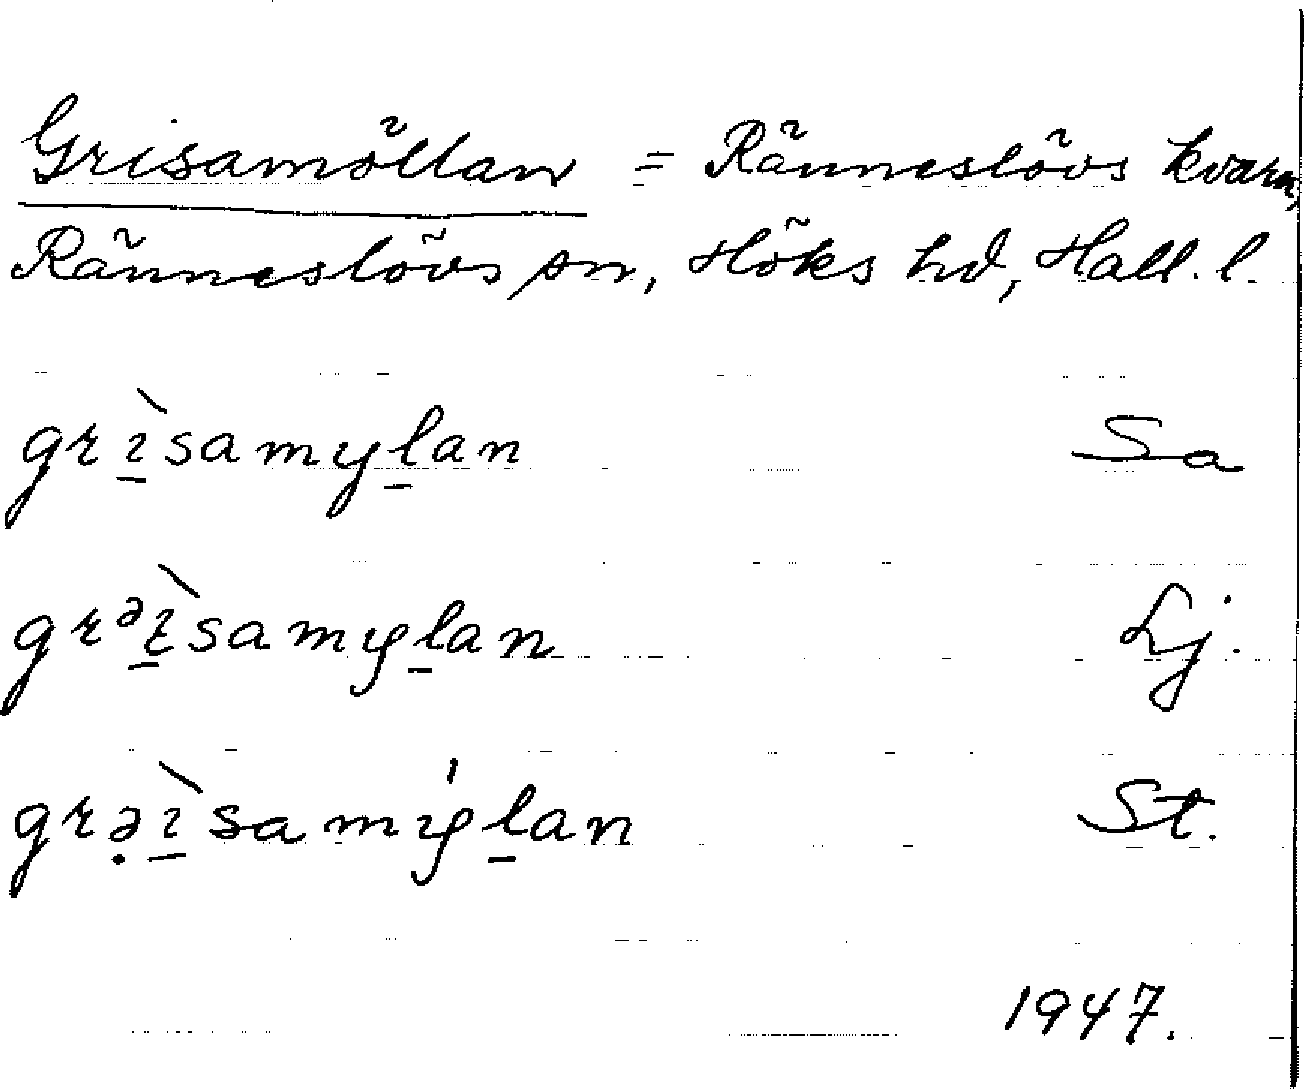 Grisamöllan = Ränneslövs kvarn,
Ränneslövs sn, Höks hd, Hall. l.
grɪ̱̀samyḻan Sa
grᵊɪ̱̀samyḻan Lj.
grə̣ɪ̱̀samýḻan St.
1947.